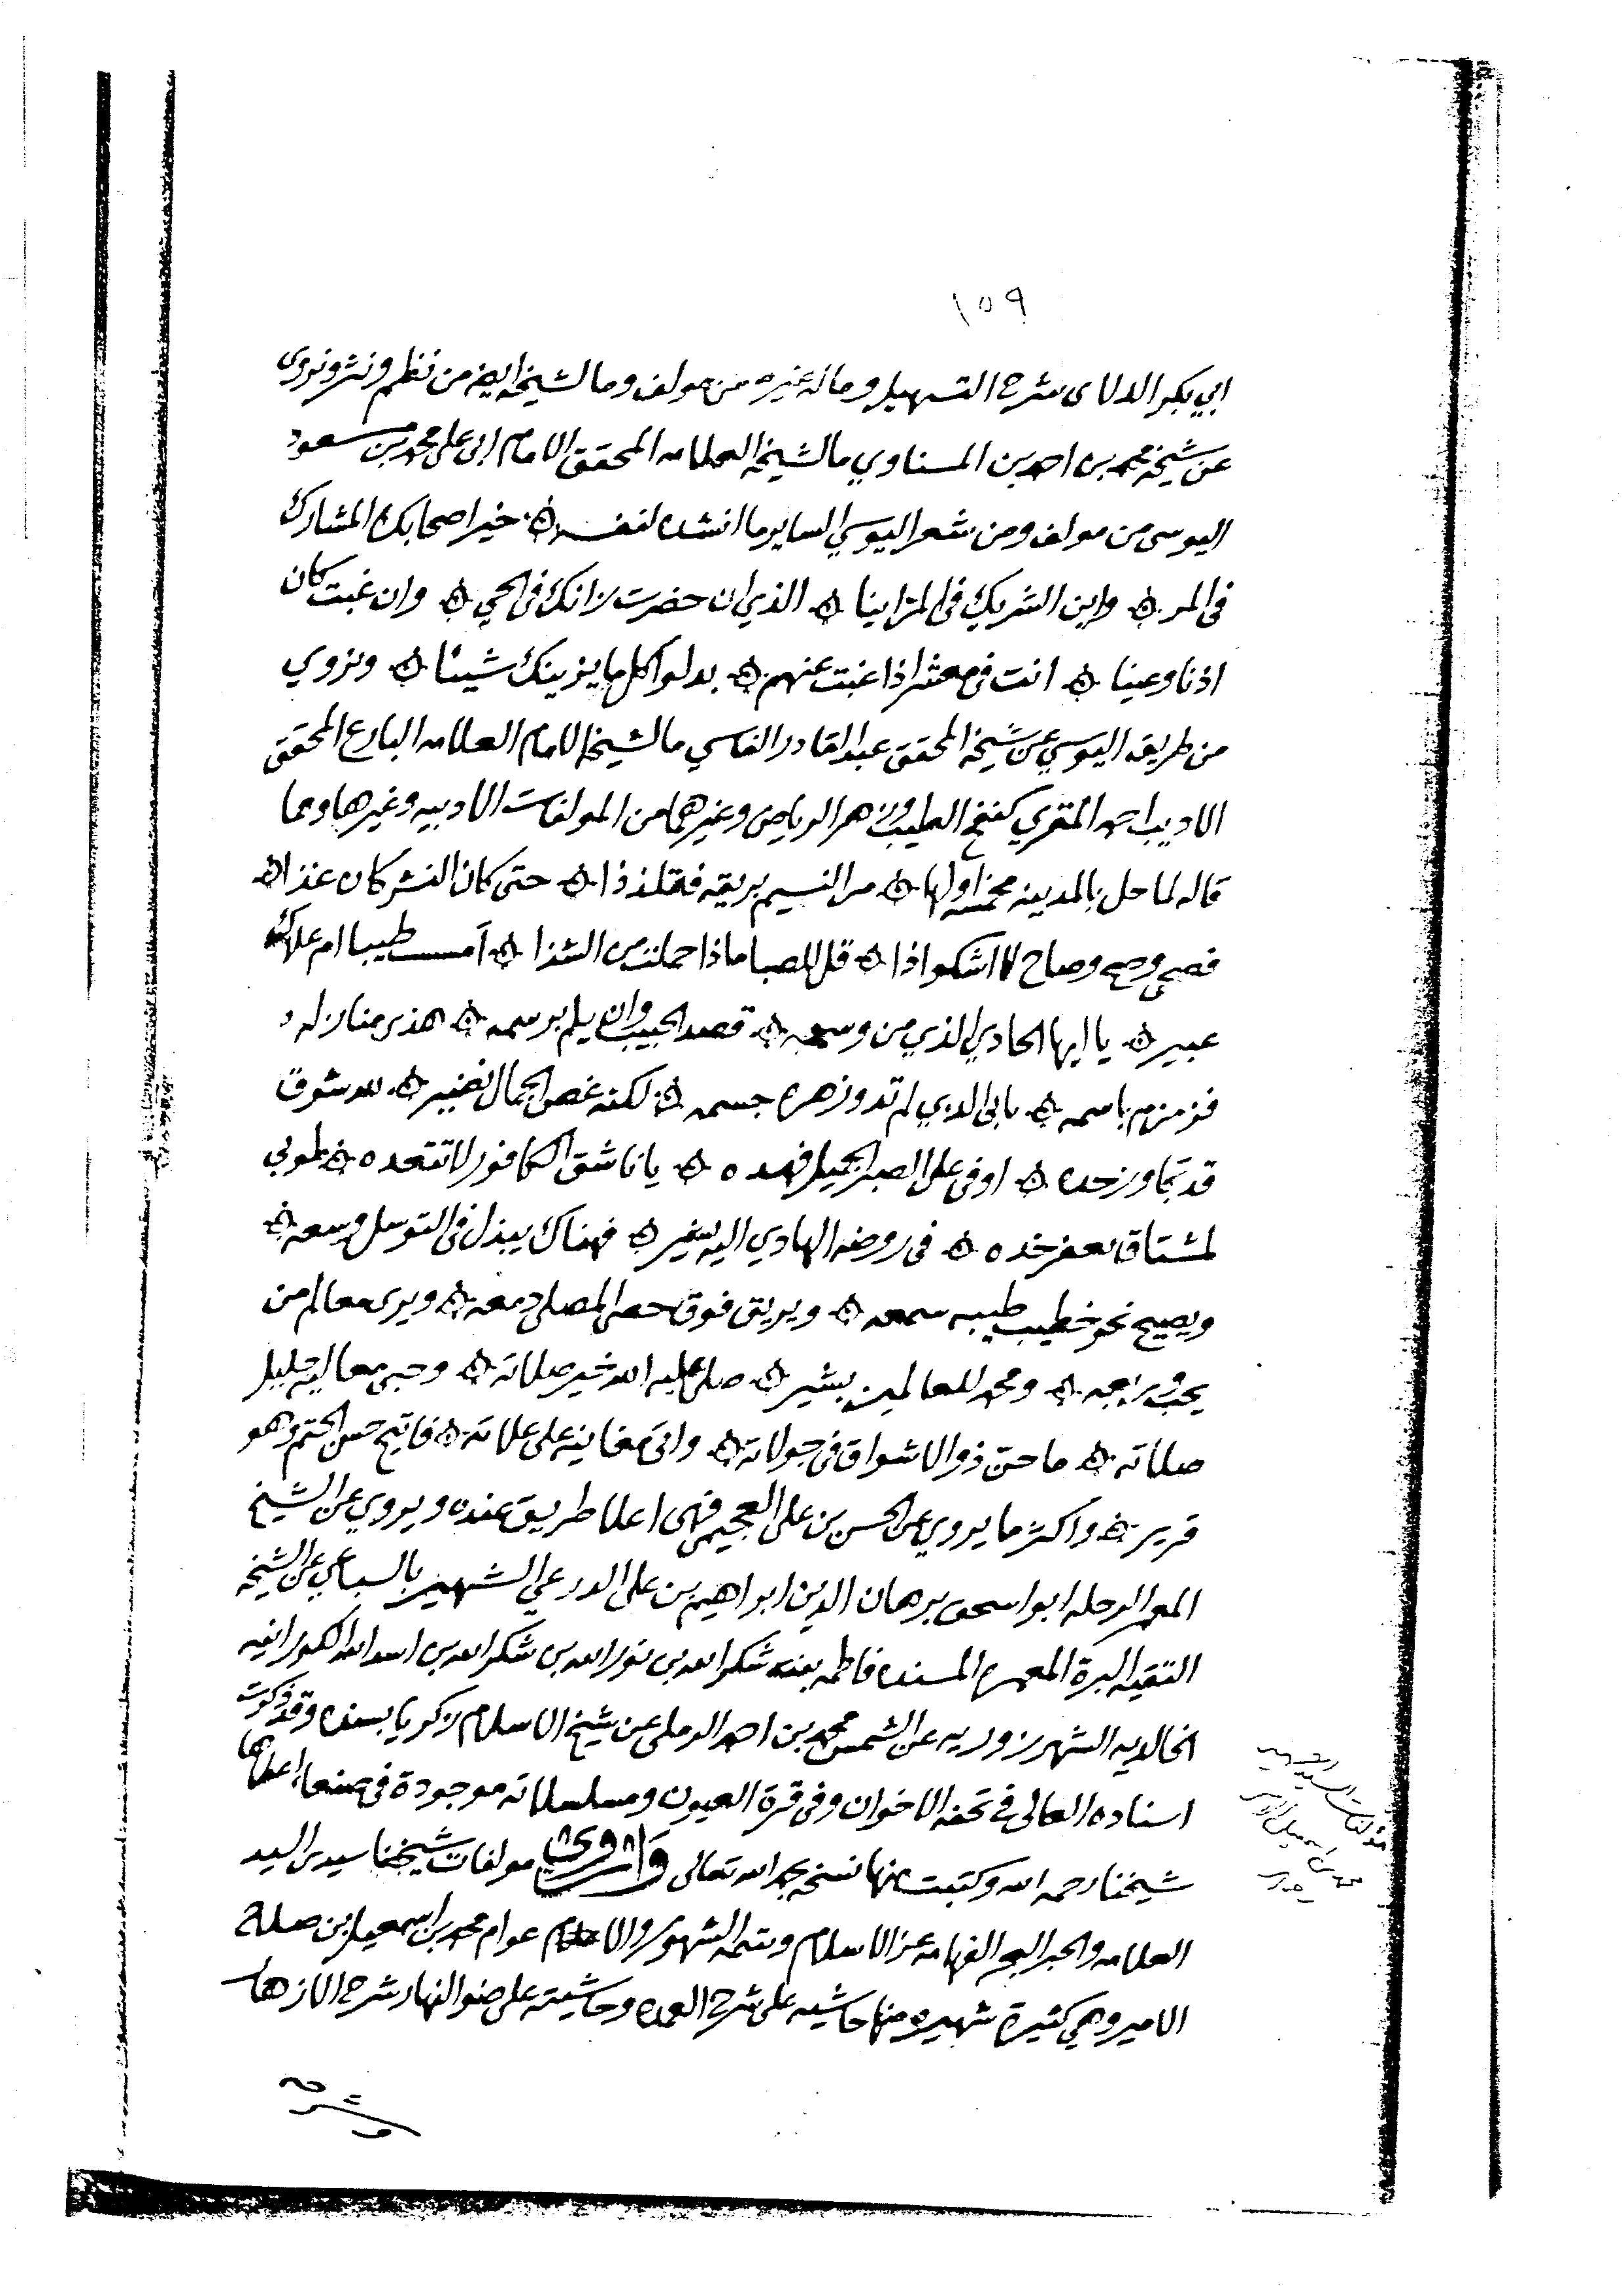 ١٥٩
ابي بكر الدلاى شرح التسهيل وماله غيره من مولف وما لشيخه ايضا من نظم ونثر ونروى
عن شيخه محمد بن احمد بن المسناوي ما لشيخه العلامه المحقق الامام ابى على محمد بن مسعود
اليوسى من مولف ومن شعر اليوسي الساير ما انشده لنفسه ۞ خير اصحابك المشارك
فى المر ۞ واين الشريك فى المر اينا ۞ الذي ان حضرت زانك فى الحي ۞ وان غبت كان
اذنا وعينا ۞ انت فى معشر اذا غبت عنهم ۞ بدلوا كل ما يزينك شينا ۞ ونروي
من طريقه اليوسي عن شيخه المحقق عبد القادر الفاسي ما لشيخه الامام العلامه البارع المحقق
الاديب احمد المقري كنفح الطيب وازهر الرياض وغيرهما من المولفات الادبيه وغيرها ومما
قاله لما حل بالمدينه مخمسه اولها ۞ مر النسيم بريقه فتلذذا ۞ حتى كان النشر كان غذا ۞
فصحى وصح وصاح لا اشكو اذا ۞ قل للصبا ماذا حملت من الشذا ۞ أمسست طيبا ام علاك
عبير ۞ يا ايها الحادي الذي من وسمه ۞ قصد الحبيب وان يلم برسمه ۞ هذى منازله
فزمزم باسمه ۞ بابى الذي لم تذو زهرة جسمه ۞ لكنه غصن الجمال نضير ۞ لله شوق
قد تجاوز حده ۞ اوفى على الصبر الجميل فهده ۞ يا ناشق الكافور لا تتعده ۞ طوبى
لمشتاق يعفر خده ۞ فى روضه الهادي اليه يشير ۞ فهناك يبذل فى التوسل وسعه ۞
ويصيخ نحو خطيب طيبه سمعه ۞ ويريق فوق حصى المصلى دمعه ۞ ويرى معالم من
يحب وربعه ۞ ومحمد للعالمين بشير ۞ صلى عليه الله خير صلاته ۞ وحبى معاليه جليل
صلاته ۞ ما حن ذو الاشواق فى جولاته ۞ واتى مغانيه على علاته ۞ فاتيح حسن الختم وهو
قرير ۞ واكثر ما يروي عن الحسن بن على العجيمى فهى اعلا طريق عنده ويروي عن الشيخ
المعمر الرحله ابو اسحق برهان الدين ابراهيم بن على الدرعي الشهير بالسباعي عن الشيخه
التقيه البرة المعمره المسنده فاطمه بنت شكر الله بن نور الله بن شكر الله بن اسد الله الكورانيه
الخالديه الشهرزوريه عن الشمس محمد بن احمد الرملى عن شيخ الاسلام زكريا بسنده وقد ذكرت
اسناده العالى في تحفه الاخوان وفى قرة العيون ومسلسلاته موجودة فى صنعا اعطاها
شيخنا رحمه الله وكتبت منها نسخه بحمد الله تعالى واروى مولفات شيخنا سيدى السيد
العلامه والحبر البحر الفهامه عز الاسلام وتتمه الشهور والاعوام محمد بن اسمعيل ابن صلاح
الامير وهي كثيرة شهيره منها حاشيه على شرح العمده وحاشيته على ضوالنهار شرح الازهار
وشرحه
مؤلفات السيد الشهير
محمد بن اسمعيل الامير